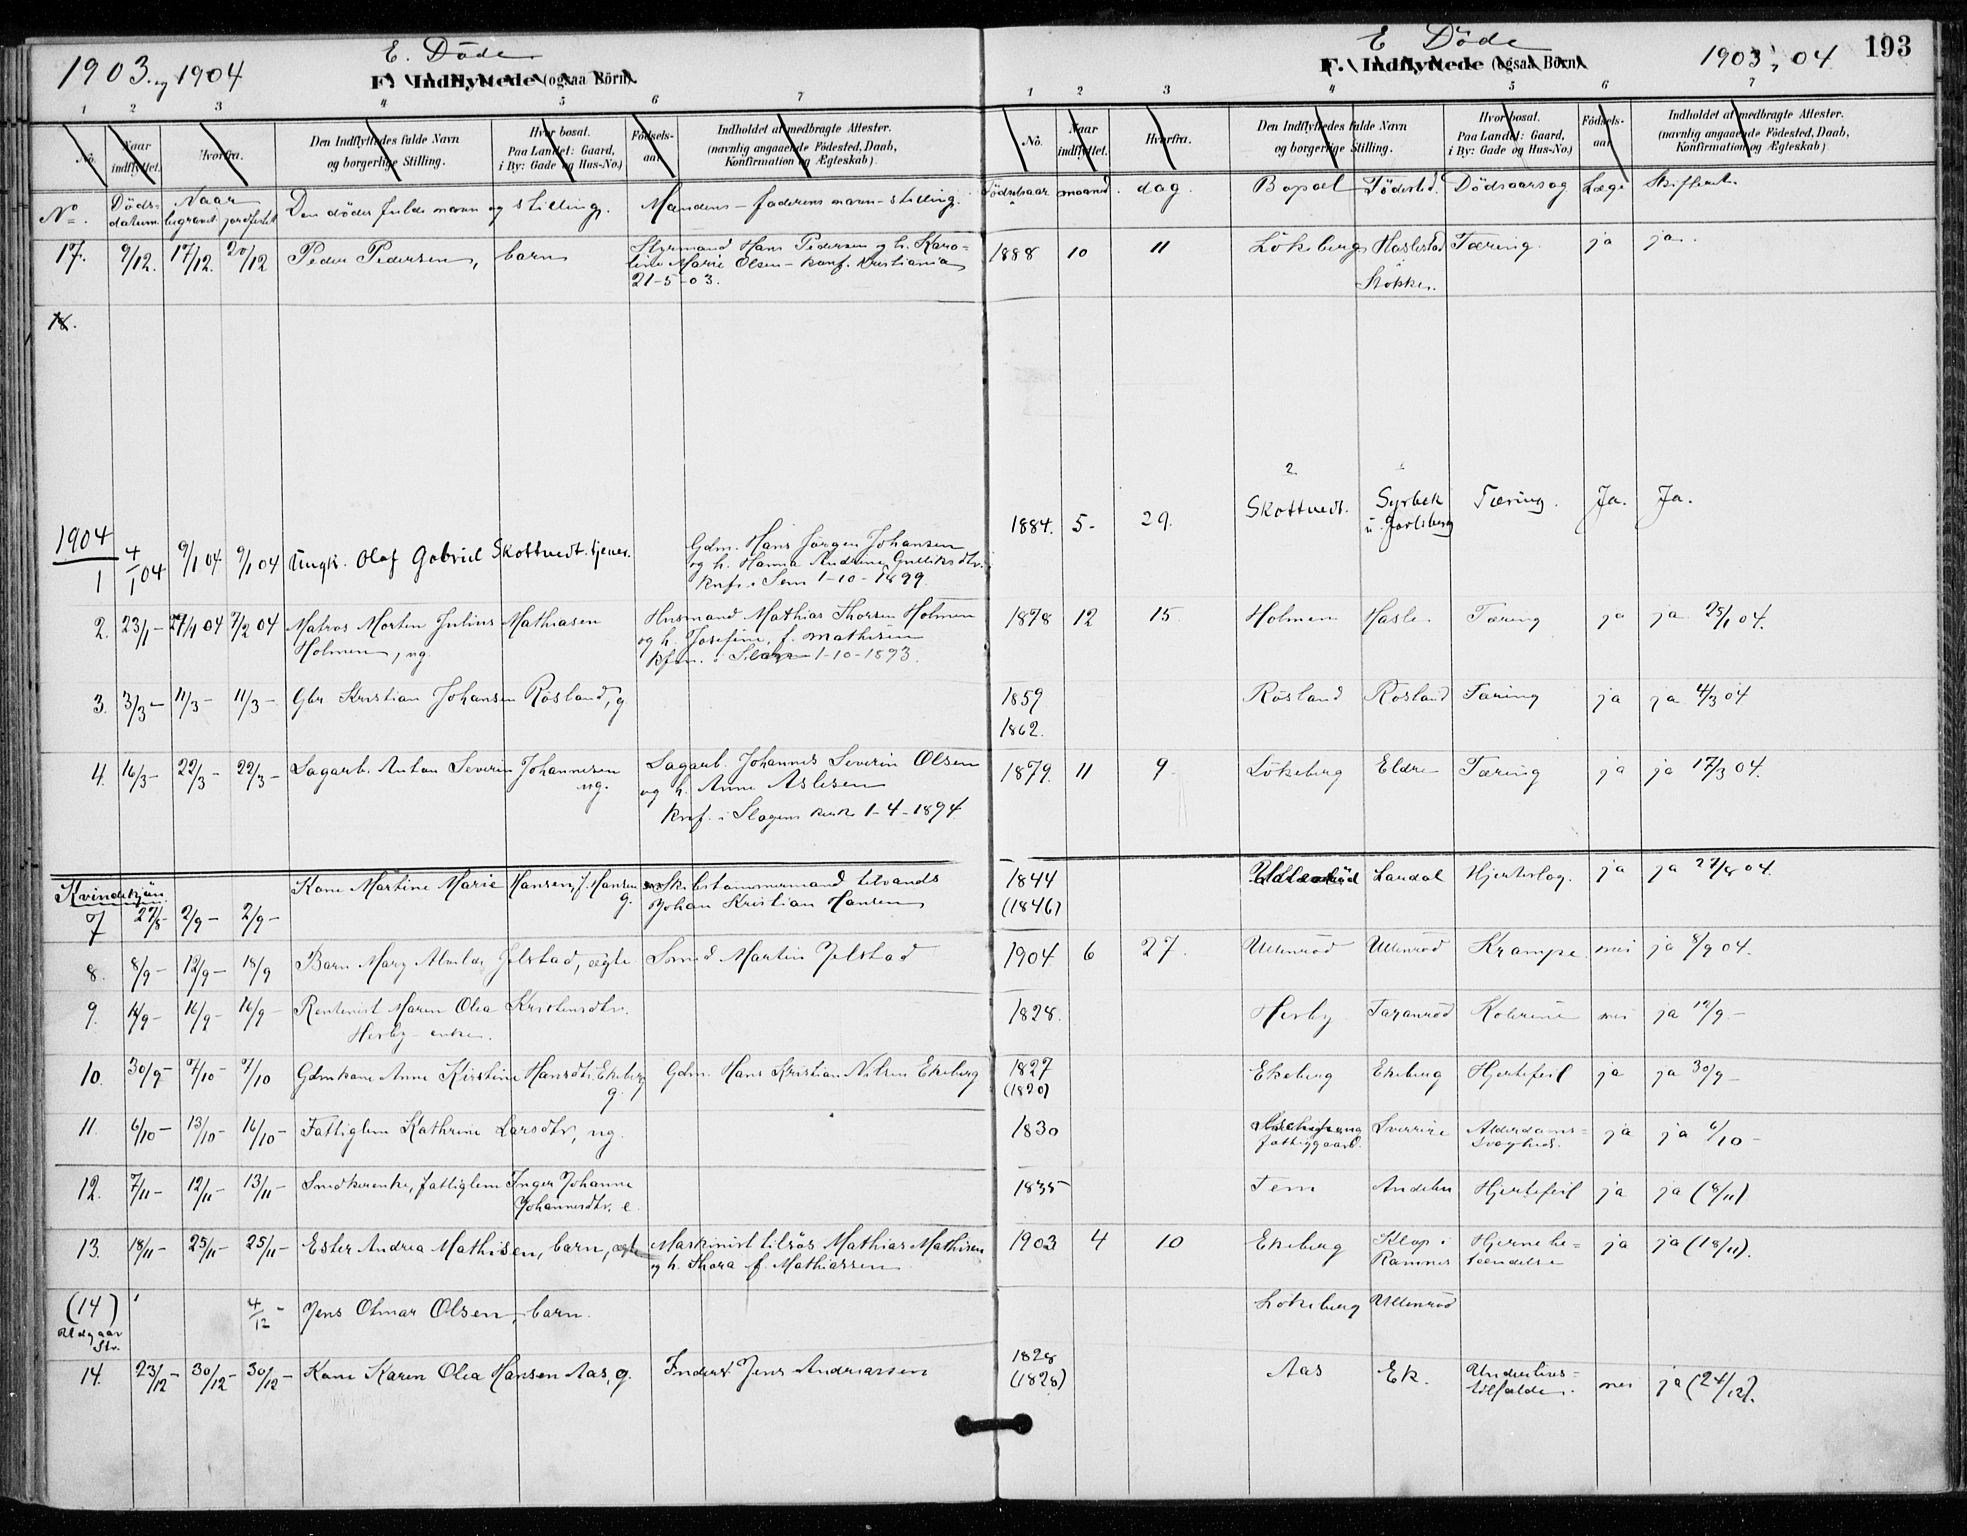 1903 og 1904
E. Döde
F. Indflyttede (ogsaa Börn).
1 2 3 4 5 6 7
No.
Naar indflyttet.
Hvorfra.
Den Indflyttedes fulde Navn og borgerlige Stilling.
Hvor bosat. Paa Landet: Gaard, i By: Gade og Hus-No.)
Födselsaar.
Indholdet af medbragte Attester. (navnlig angaaende Födested, Daab, Konfirmation og Ægteskab)
No. Döds-datum. Naar begravet jordfestet Den dödes fulde navn og stilling. Mandens - faderens navn - stilling.
17. 9/12. 17/12. 20/12 Peder Pedersen, barn Styrmand Hans Pedersen og h. Karo-
line Marie Olsen - konf. Kristiania
21-5-03.
18.
1904
1 4/1 04 9/1 04 9/1 04 Ungk. Olaf Gabriel Skottvedt. tjener. Gdm. Hans Jørgen Johansen
og h. Hanna Andrine Gulliksdtr.
knf. i Sem 1-10-1899.
2. 23/1 - 27/1 04 7/2 04 Matros Morten Julius Mathiasen Husmand Mathias Thorsen Holmen
Holmen, ug. og h. Josefine, f. Mathisen
kfm. i Slagen 1-10-1893.
3. 3/3 - 11/3 - 11/3 - Gbr Kristian Johansen Røsland, g
4. 16/3 - 22/3 - 22/3 - Sagarb. Anton Severin Johannesen Sagarb. Johannes Severin Olsen
ug. og h. Anne Aslesen
knf. i Slagens kirke 1-4-1894
Kvindekjøn
7 27/8 - 2/9 - 2/9 - Kone Martine Marie Hansen, f. Hansen g. Skibstømmermand tilvands
Johan Kristian Hansen
8. 8/9 - 12/9 - 18/9 Barn Mary Alvilde Jelstad, ægte Smed Martin Jelstad
9. 12/9 - 16/9 - 16/9 - Rentenist Maren Olea Kristensdtr.
Hesby - enke.
10. 30/9 - 7/10 - 7/10 Gdmkone Anne Kirstine Hansdtr. Ekeberg g. Gdm. Hans Kristian Nilsen Ekeberg
11. 6/10 - 13/10 - 16/10 - Fattiglem Kathrine Larsdtr, ug.
12. 7/11 - 12/11 - 13/11 - Smedkerenke, fattiglem Inger Johanne
Johannesdtr. e.
13. 18/11 - 25/11 - 25/11 - Ester Andrea Mathisen, barn, ægte Maskinist tilsøs Mathias Mathisen
og h. Thora f. Mathiassen
(14) 4/12 - Jens Otmar Olsen, barn.
Udgaar
14. 23/12 - 30/12 - 30/12 - Kone Karen Olea Hansen Aas, g. Inderst Jens Andreassen
E Döde
1903, 04
193
F. Indflyttede (ogsaa Börn).
1 2 3 4 5 6 7
No.
Naar indflyttet.
Hvorfra.
Den Indflyttedes fulde Navn og borgerlige Stilling.
Hvor bosat. Paa Landet: Gaard, i By: Gade og Hus-No.)
Födselsaar.
Indholdet af medbragte Attester. (navnlig angaaende Födested, Daab, Konfirmation og Ægteskab)
Födselsaar maaned dag Bopæl Födested. Dödsaarsag Læge Skifteret.
1888 10 11 Lökeberg Haslestad Tæring. ja ja.
Stokke.
2.
1884. 5. 29. Skottvedt. Syrbek Tæring. Ja. Ja.
u. Jarlsberg
1878 12 15. Holmen Hasle Tæring ja ja 25/1 04.
1859 Røsland Røsland Tæring ja ja 4/3 04
1862.
1879. 11 9 Lökeberg Eldre Tæring ja ja 17/3 04.
1844 Laudal Hjerteslag. ja ja 27/8 04.
(1846)
1904 6 27. Ullenrød Ullenrød Krampe nei ja 8/9 04.
1828. Hesby Taranrød Kolerine nei ja 12/9 -
1827 Ekeberg Ekeberg Hjertefeil ja ja 30/9 -
(1820)
1830 fattiggaard. Sverrire Alderdoms-
svaghed. ja ja 6/10 -
1835 Tem Andebu Hjertefeil ja ja (8/11)
1903 4 10 Ekeberg Klop i Hjernebe- ja ja (18/11).
Ramnes tændelse
Lökeberg Ullenrød
1828 Aas Ek. Underlivs- nei ja (24/12).
(1828) tilfælde.